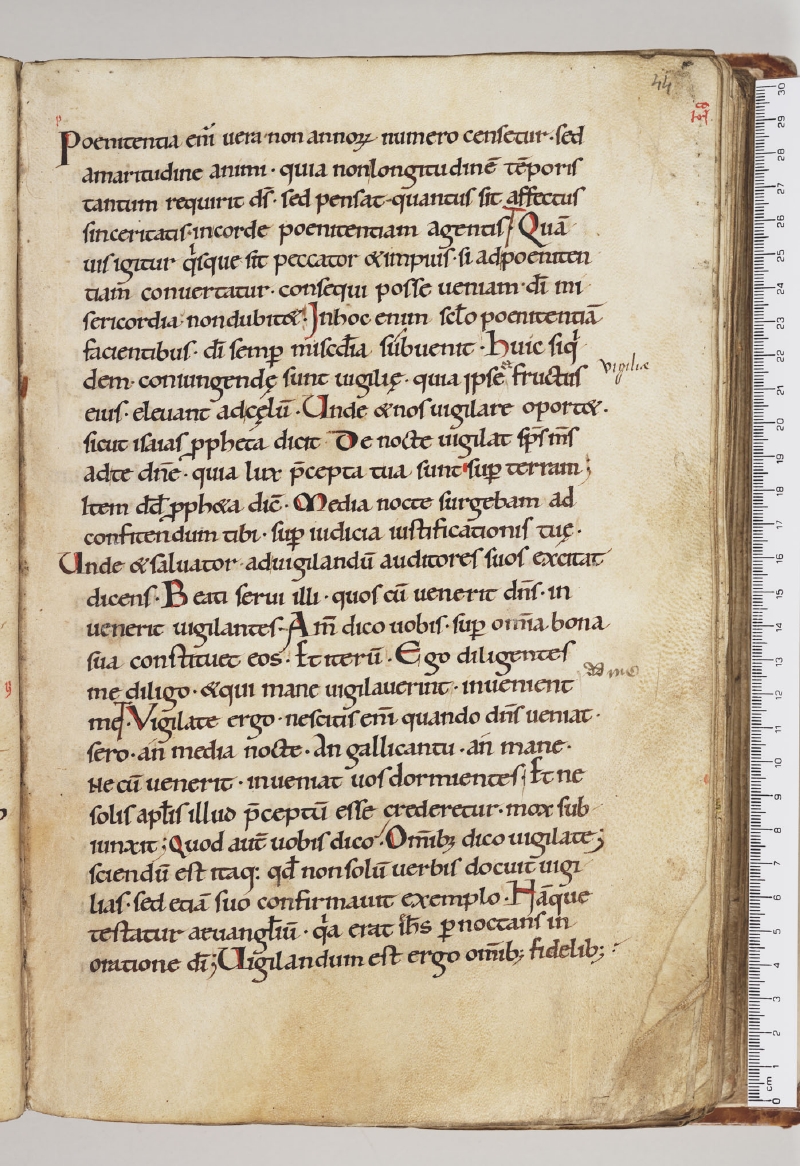 44
Poenitentia em̅ uera non annoꝝ numero censetur · sed
amaritudine animi · quia nonlongitudine̅ te̅poris
tantum requirit ds̅ · sed pensat quantus sit affectus
sinceritatis · incorde poenitentiam agentis; Qua̅
uis igitur qͥsque sit peccator &impius · si adpoeniten
tiam conuertatur · consequi posse ueniam · di̅ mi
sericordia nondubit& · Inhoc enim sc̅lo poenitentia̅
facientibus · di̅ semꝑ misc̅dia subuenit · Huic siqͥ
dem · coniungendę sunt uigilię · quia ipse fructus
vigiliæ
eius · eleuant adcęlu̅ · Unde &nos uigilare oport& ·
sicut isaias ꝓpheta dicit De nocte uigilat sps̅ ms̅
adte dn̅e · quia lux p̅cepta tua sunt suꝑ terram;
Item dd̅ ꝓph&a dic̅ · Media nocte surgebam ad
confitendum tibi · suꝑ iudicia iustificationis tuę ·
Unde &saluator aduigilandu̅ auditores suos excitat
dicens · Beati serui illi · quos cu̅ uenerit dn̅s · in
uenerit uigilantes · Am̅ dico uobis · suꝑ om̅ia bona
sua constituet eos · Et iteru̅ · Ego diligentes
me diligo · &qui mane uigilauerint · inuenient
me; Vigilate ergo · nescitis em̅ quando dn̅s ueniat ·
sero · an media nocte · An gallicantu · an mane ·
Ne cu̅ uenerit · inueniat uos dormientes; Et ne
solis apl̅is illud p̅ceptu̅ esse crederetur · mox sub
iunxit; Quod aut̅ uobis dico · Om̅ibꝫ dico uigilate;
sciendu̅ est itaq: qd̅ nonsolu̅ uerbis docuit uigi
lias · sed etia̅ suo confirmauit exemplo · Ha̅que
testatur aeuangl̅iu̅ · qͣa erat ih̅s pnoctans in
oratione di̅; Uigilandum est ergo om̅ibꝫ fidelibꝫ